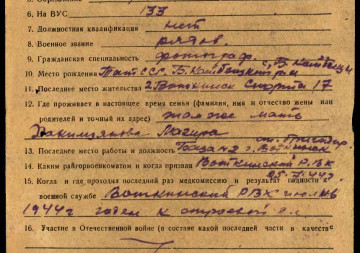 6. На ВУС 133
7. Должностная квалификация нет
8. Военное звание рядов.
9. Гражданская специальность фотограф.
10. Место рождения ТатССР Б. Кайбицкий с. Б. Кайбицы
11. Последнее место жительства г. Воткинск Спорта 17
12. Где проживает в настоящее время семья (фамилия, имя и отчество жены или
родителей и точный их адрес) там же мать
13. Последнее место работы и должность Воткинск
14. Каким райгорвоенкоматом и когда призван Воткинский РВК
25.7.44 г
15. Когда и где проходил последний раз медкомиссию и результат годности к
военной службе Воткинский РВК июль м-ц
1944 г годен к строевой
16. Участие в Отечественной войне (в составе какой последней части в качестве